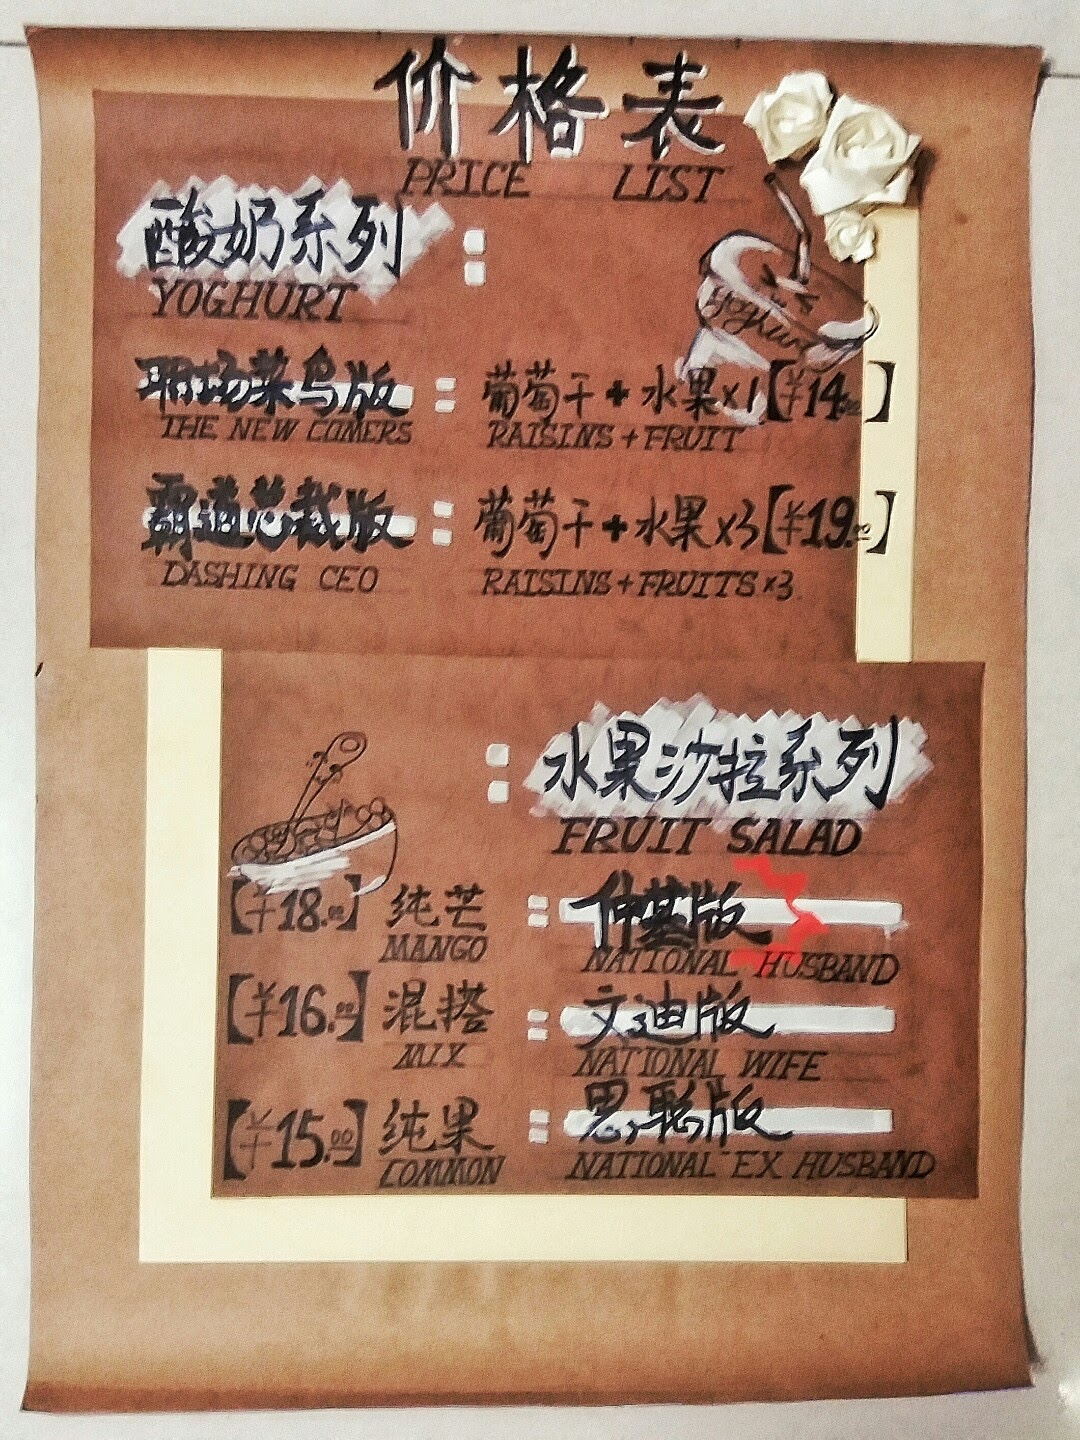 价格表
PRICE LIST
酸奶系列：
YOGHURT
Yoghurt
职场菜鸟版：葡萄干+水果×1【¥14.00】
THE NEW COMERS RAISINS+FRUIT
霸道总裁版：葡萄干+水果×3【¥19.00】
DASHING CEO RAISINS+FRUITS×3
：水果沙拉系列
FRUIT SALAD
【¥18.00】纯芒：仲基版
MANGO NATIONAL HUSBAND
【¥16.00】混搭：文迪版
MIX NATIONAL WIFE
【¥15.00】纯果：思聪版
COMMON NATIONAL EX HUSBAND